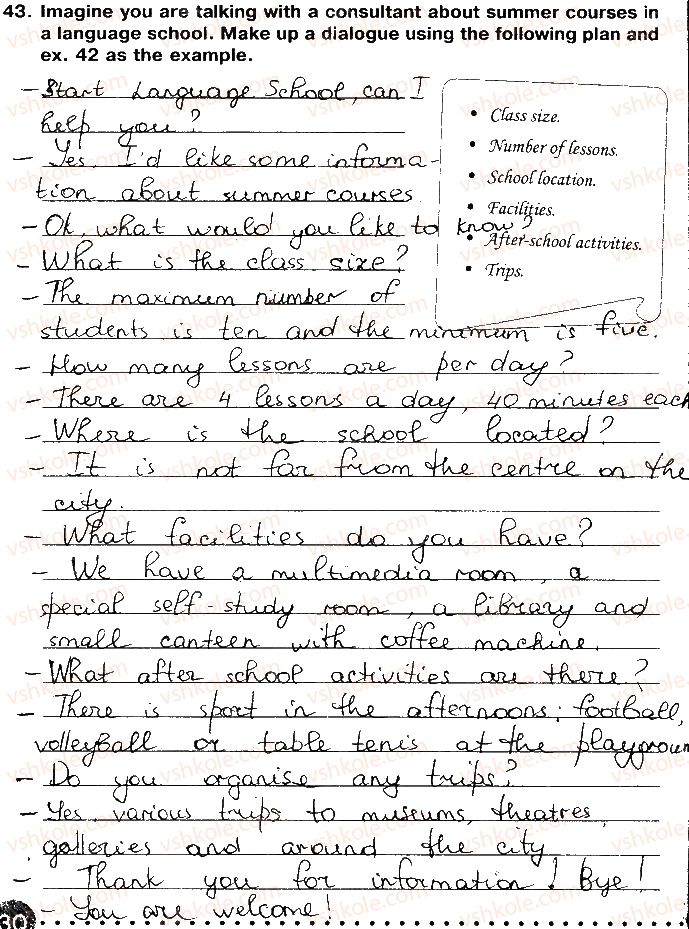 43. Imagine you are talking with a consultant about summer courses in
a language school. Make up a dialogue using the following plan and
ex. 42 as the example.
• Class size.
• Number of lessons.
• School location.
• Facilities.
• After-school activities.
• Trips.
– Start Language School, can I
help you?
– Yes, I'd like some informa-
tion about summer courses
– Ok, what would you like to know?
– What is the class size?
– The maximum number of
students is ten and the minimum is five.
– How many lessons are per day?
– There are 4 lessons a day, 40 minutes each
– Where is the school located?
– It is not far from the centre on the
city.
– What facilities do you have?
– We have a multimedia room, a
special self-study room, a library and
small canteen with coffee machine.
– What after school activities are there?
– There is sport in the afternoons: football,
volleyball or table tenis at the playgroun
– Do you organise any trips?
– Yes, various trips to museums, theatres,
galleries and around the city
– Thank you for information! Bye!
– You are welcome!
30
vshkole.com